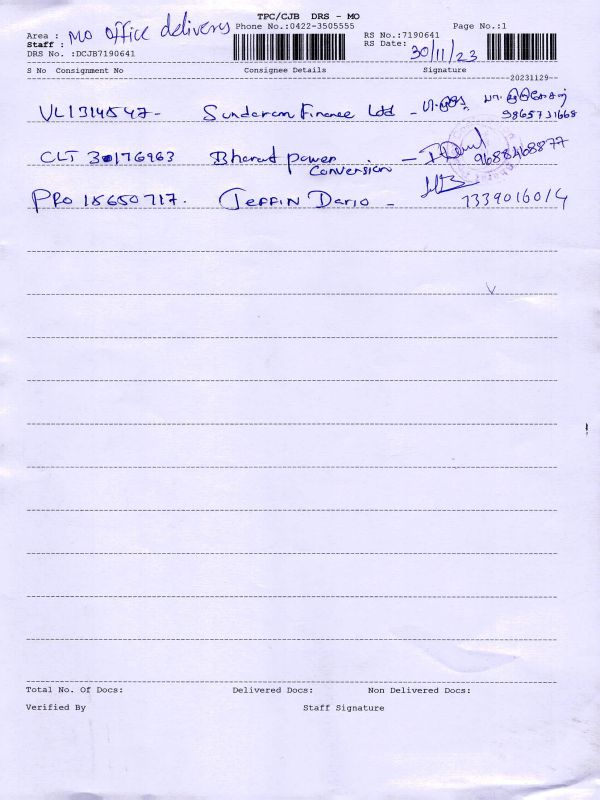 TPC/CJB DRS - MO
Area : MO office delivery Phone No.:0422-3505555 RS No.:7190641 Page No.:1
Staff : RS Date: 30/11/23
DRS No. :DCJB7190641
S No Consignment No Consignee Details Signature
20231129
VL1314547- Sundaram Finance Ltd - 9865731668
CLT 30176963 Bharat power conversion - 9688468877
PRO 18650717. Jeffin Dario - 7339016014
Total No. Of Docs: Delivered Docs: Non Delivered Docs:
Verified By Staff Signature